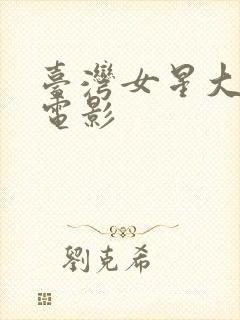 臺灣女星大
電影
劉克希